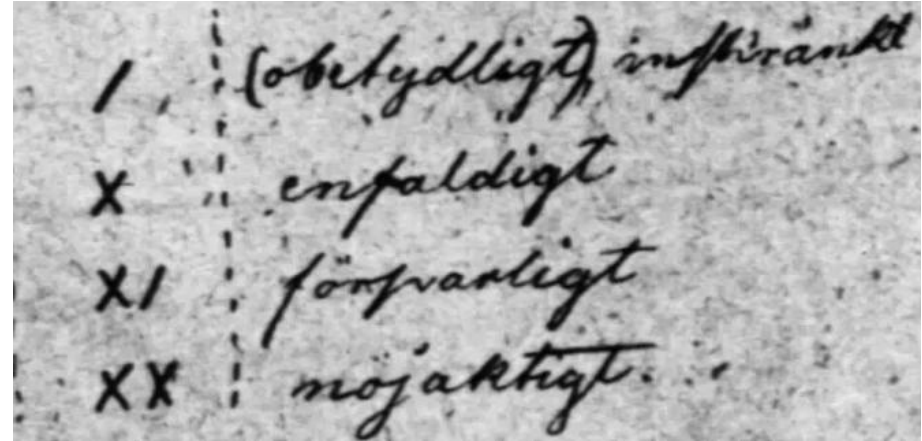 / (obetydligt) inskränkt
X enfaldigt
X/ försvarligt
XX nöjaktigt.